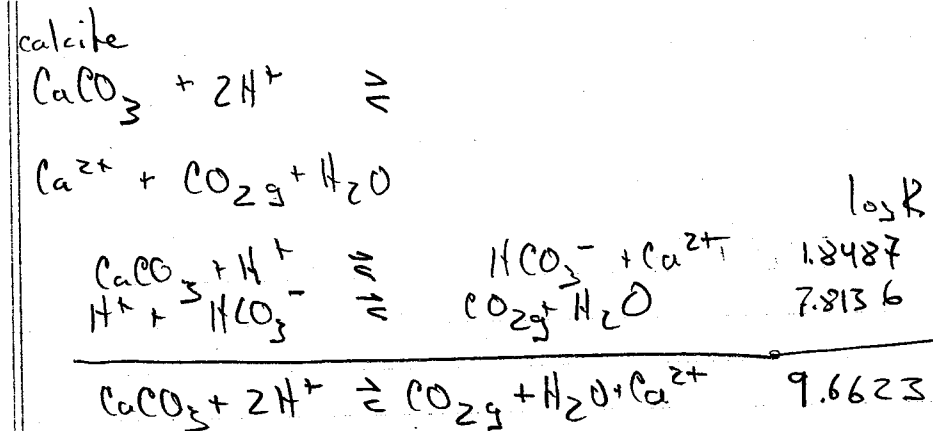 calcite
CaCO₃ + 2H⁺ ⇌
Ca²⁺ + CO₂g + H₂O
log K
CaCO₃ + H⁺ ⇌ HCO₃⁻ + Ca²⁺ 1.8487
H⁺ + HCO₃⁻ ⇌ CO₂g + H₂O 7.8136
CaCO₃ + 2H⁺ ⇌ CO₂g + H₂O + Ca²⁺ 9.6623